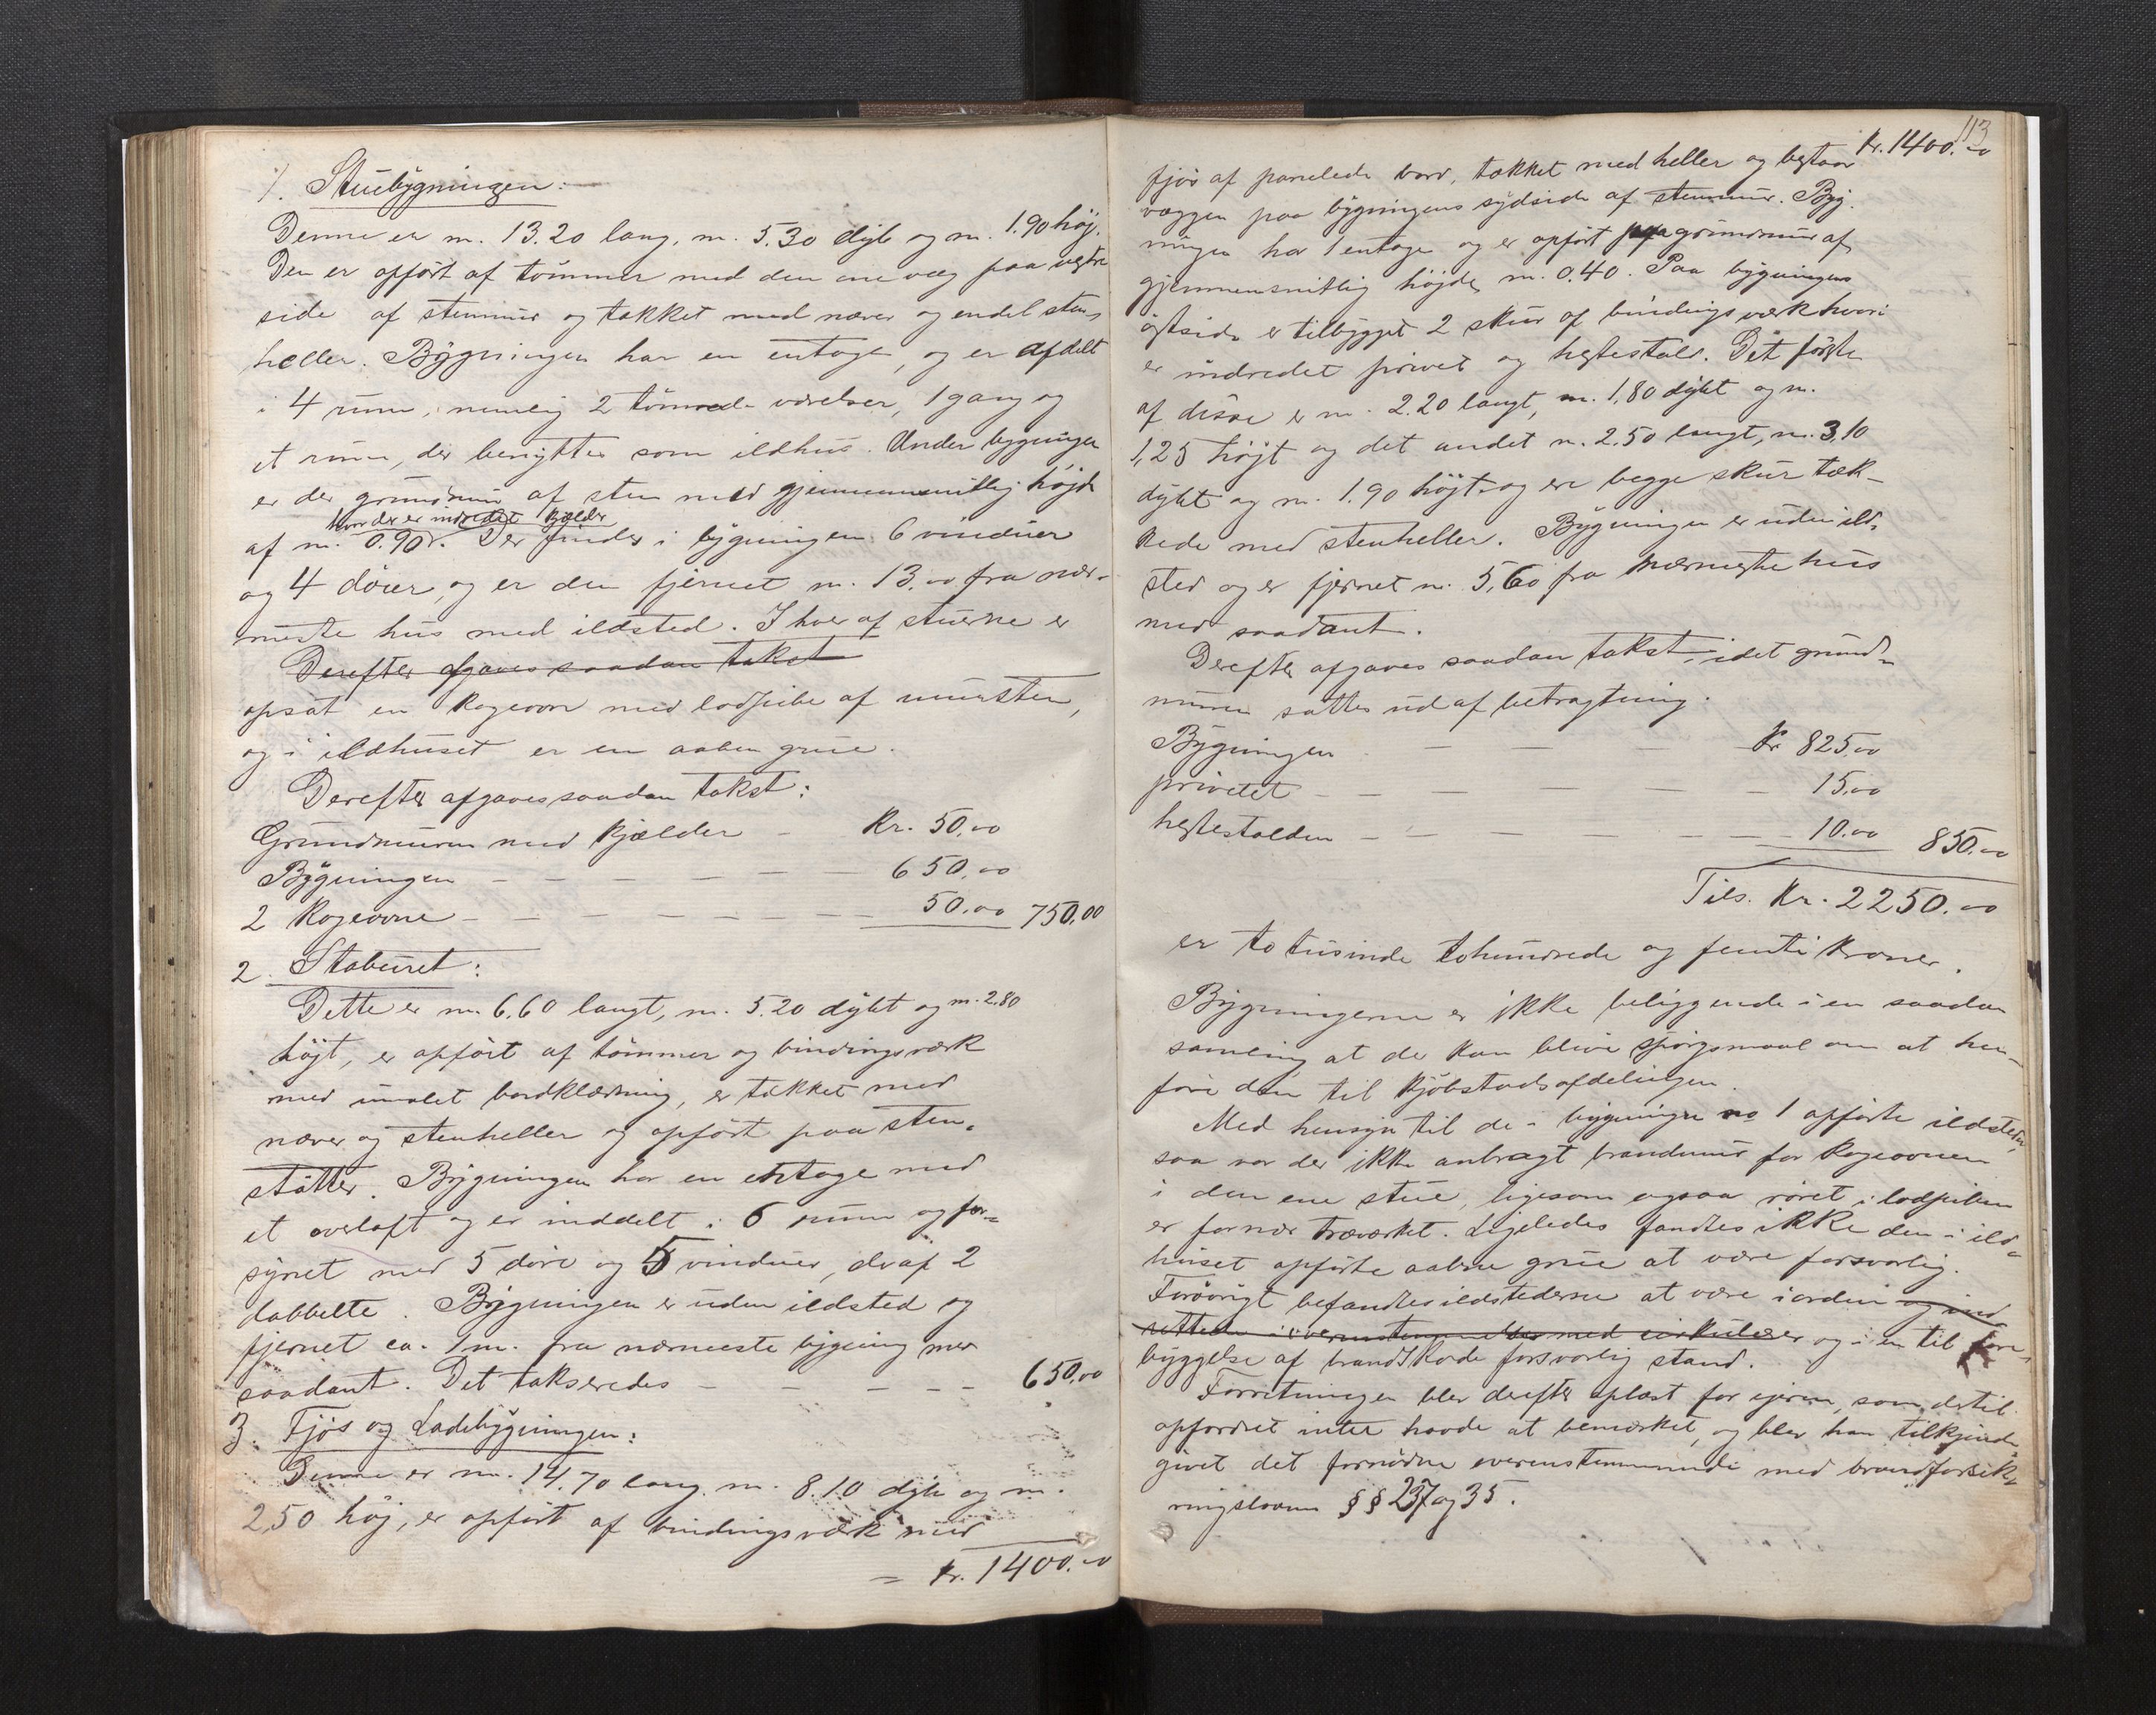 1. Stuebygningen:
Denne er m. 13.20 lang, m. 5.30 dyb og m. 1.90 høj.
Den er opført af tømmer med den ene væg paa vestre
side af stenmur og tækket med næver og endel sten-
heller. Bygningen har en etage, og er afdelt
i 4 rum, nemlig 2 tømrede værelser, 1 gang og
et rum, der benyttes som ildhus. Under bygningen
er der grundmur af sten med gjennemsnitlig højde
hvor der er indredet kjelder
af m. 0.90. Der findes i bygningen 6 vinduer
og 4 døre, og er den fjernet m. 13.00 fra nær-
meste hus med ildsted. I hver af stuerne er
Derefter afgaves saadan takst
opsat en kogeovn med lodpibe af mursten,
og i ildhuset er en aaben grue.
Derefter afgaves saadan takst:
Grundmuren med kjælder - Kr. 50.00
Bygningen - - - - - - 650.00
2 kogeovne - - - - - - - 50.00 750.00
2. Staburet:
Dette er m. 6.60 langt, m. 5.20 dybt og m. 2.80
højt, er opført af tømmer og bindingsværk
med umalet bordklædning, er tækket med
næver og stenheller og opført paa sten-
støtter. Bygningen har en etage med
et overloft og er inddelt i 6 rum og for-
synet med 5 døre og 5 vinduer, deraf 2
dobbelte. Bygningen er uden ildsted og
fjernet ca. 1 m. fra nærmeste bygning med
saadant. Det takseredes - - - - - 650.00
3. Fjøs og Ladebygningen:
Denne er m. 14.70 lang, m. 8.10 dyb og m.
2,50 høj, er opført af bindingsværk med
= Kr. 1400.00
113
Kr. 1400.00
fjøs af panelede bord, tækket med heller og bestaar
væggen paa bygningens sydside af stenmur. Byg-
ningen har 1 entage og er opført paa grundmur af
gjennemsnitlig højde m. 0.40. Paa bygningens
østside er tilbygget 2 skur af bindingsværk hvori
er indredet privet og hestestald. Det første
af disse er m. 2.20 langt, m. 1.80 dybt og m.
1,25 højt og det andet m. 2.50 langt, m. 3.10
dybt og m. 1.90 højt og ere begge skur tæk-
kede med stenheller. Bygningen er uden ild-
sted og er fjernet m. 5,60 fra nærmeste hus
med saadant.
Derefter afgaves saadan takst, idet grund-
muren sattes ud af betragtning.
Bygningen - - - - Kr 825.00
privetet - - - - - - - 15.00
hestestalden - - - - - - - 10.00 850.00
Tils. Kr. 2250.00
er to tusinde tohundrede og femti kroner.
Bygningerne er ikke beliggende i en saadan
samling at der kan blive spørgsmaal om at hen-
føre den til kjøbstadsafdelingen.
Med hensyn til de i bygningen no 1 opførte ildsteder,
saa var der ikke anbragt brandmur for kogeovnen
i den ene stue, ligesom ogsaa røret i lodpiben
er for nær træværket. Ligeledes fandtes ikke den i ild-
huset opførte aabne grue at være forsvarlig.
Forøvrigt befandtes ildstederne at være i orden og ind
rettede i overenstemmelse med cirkulærer og i en til fore-
byggelse af brandskade forsvarlig stand.
Forretningen blev derefter oplæst for ejeren, som dertil
opfordret intet havde at bemærket, og blev han tilkjende-
givet det fornødne overensstemmende med brandforsik-
ringslovens §§ 237 og 35.